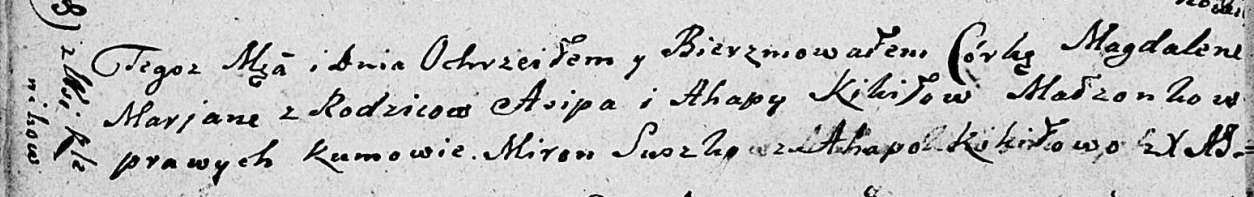 z Wsi Kle
nikow
Tegoż Mcā i Dnia Ochrzciłem y Bierzmowałem Córkę Magdalene
Marjane z Rodzicow Asipa i Ahapy Kikiłow Małzonkow
prawych Kumowie. Miron Suszko Ahapa Kikiłowo